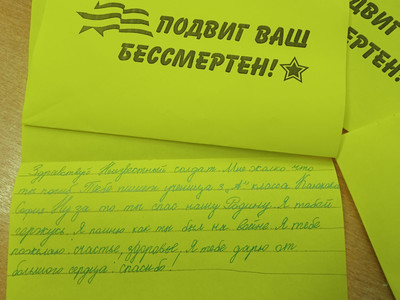 ПОДВИГ ВАШ
БЕССМЕРТЕН!
ПОДВИГ
СМЕРТЕН!
Здравствуй Неизвестный солдат. Мне жалко что
ты погиб. Тебе пишет ученица 3 „А" класса
София. за то что ты спас нашу Родину. Я тобой
горжусь. Я помню как ты был на войне. Я тебе
пожелаю: счастье, здоровье, Я тебе дарю от
большого сердца: спасибо!